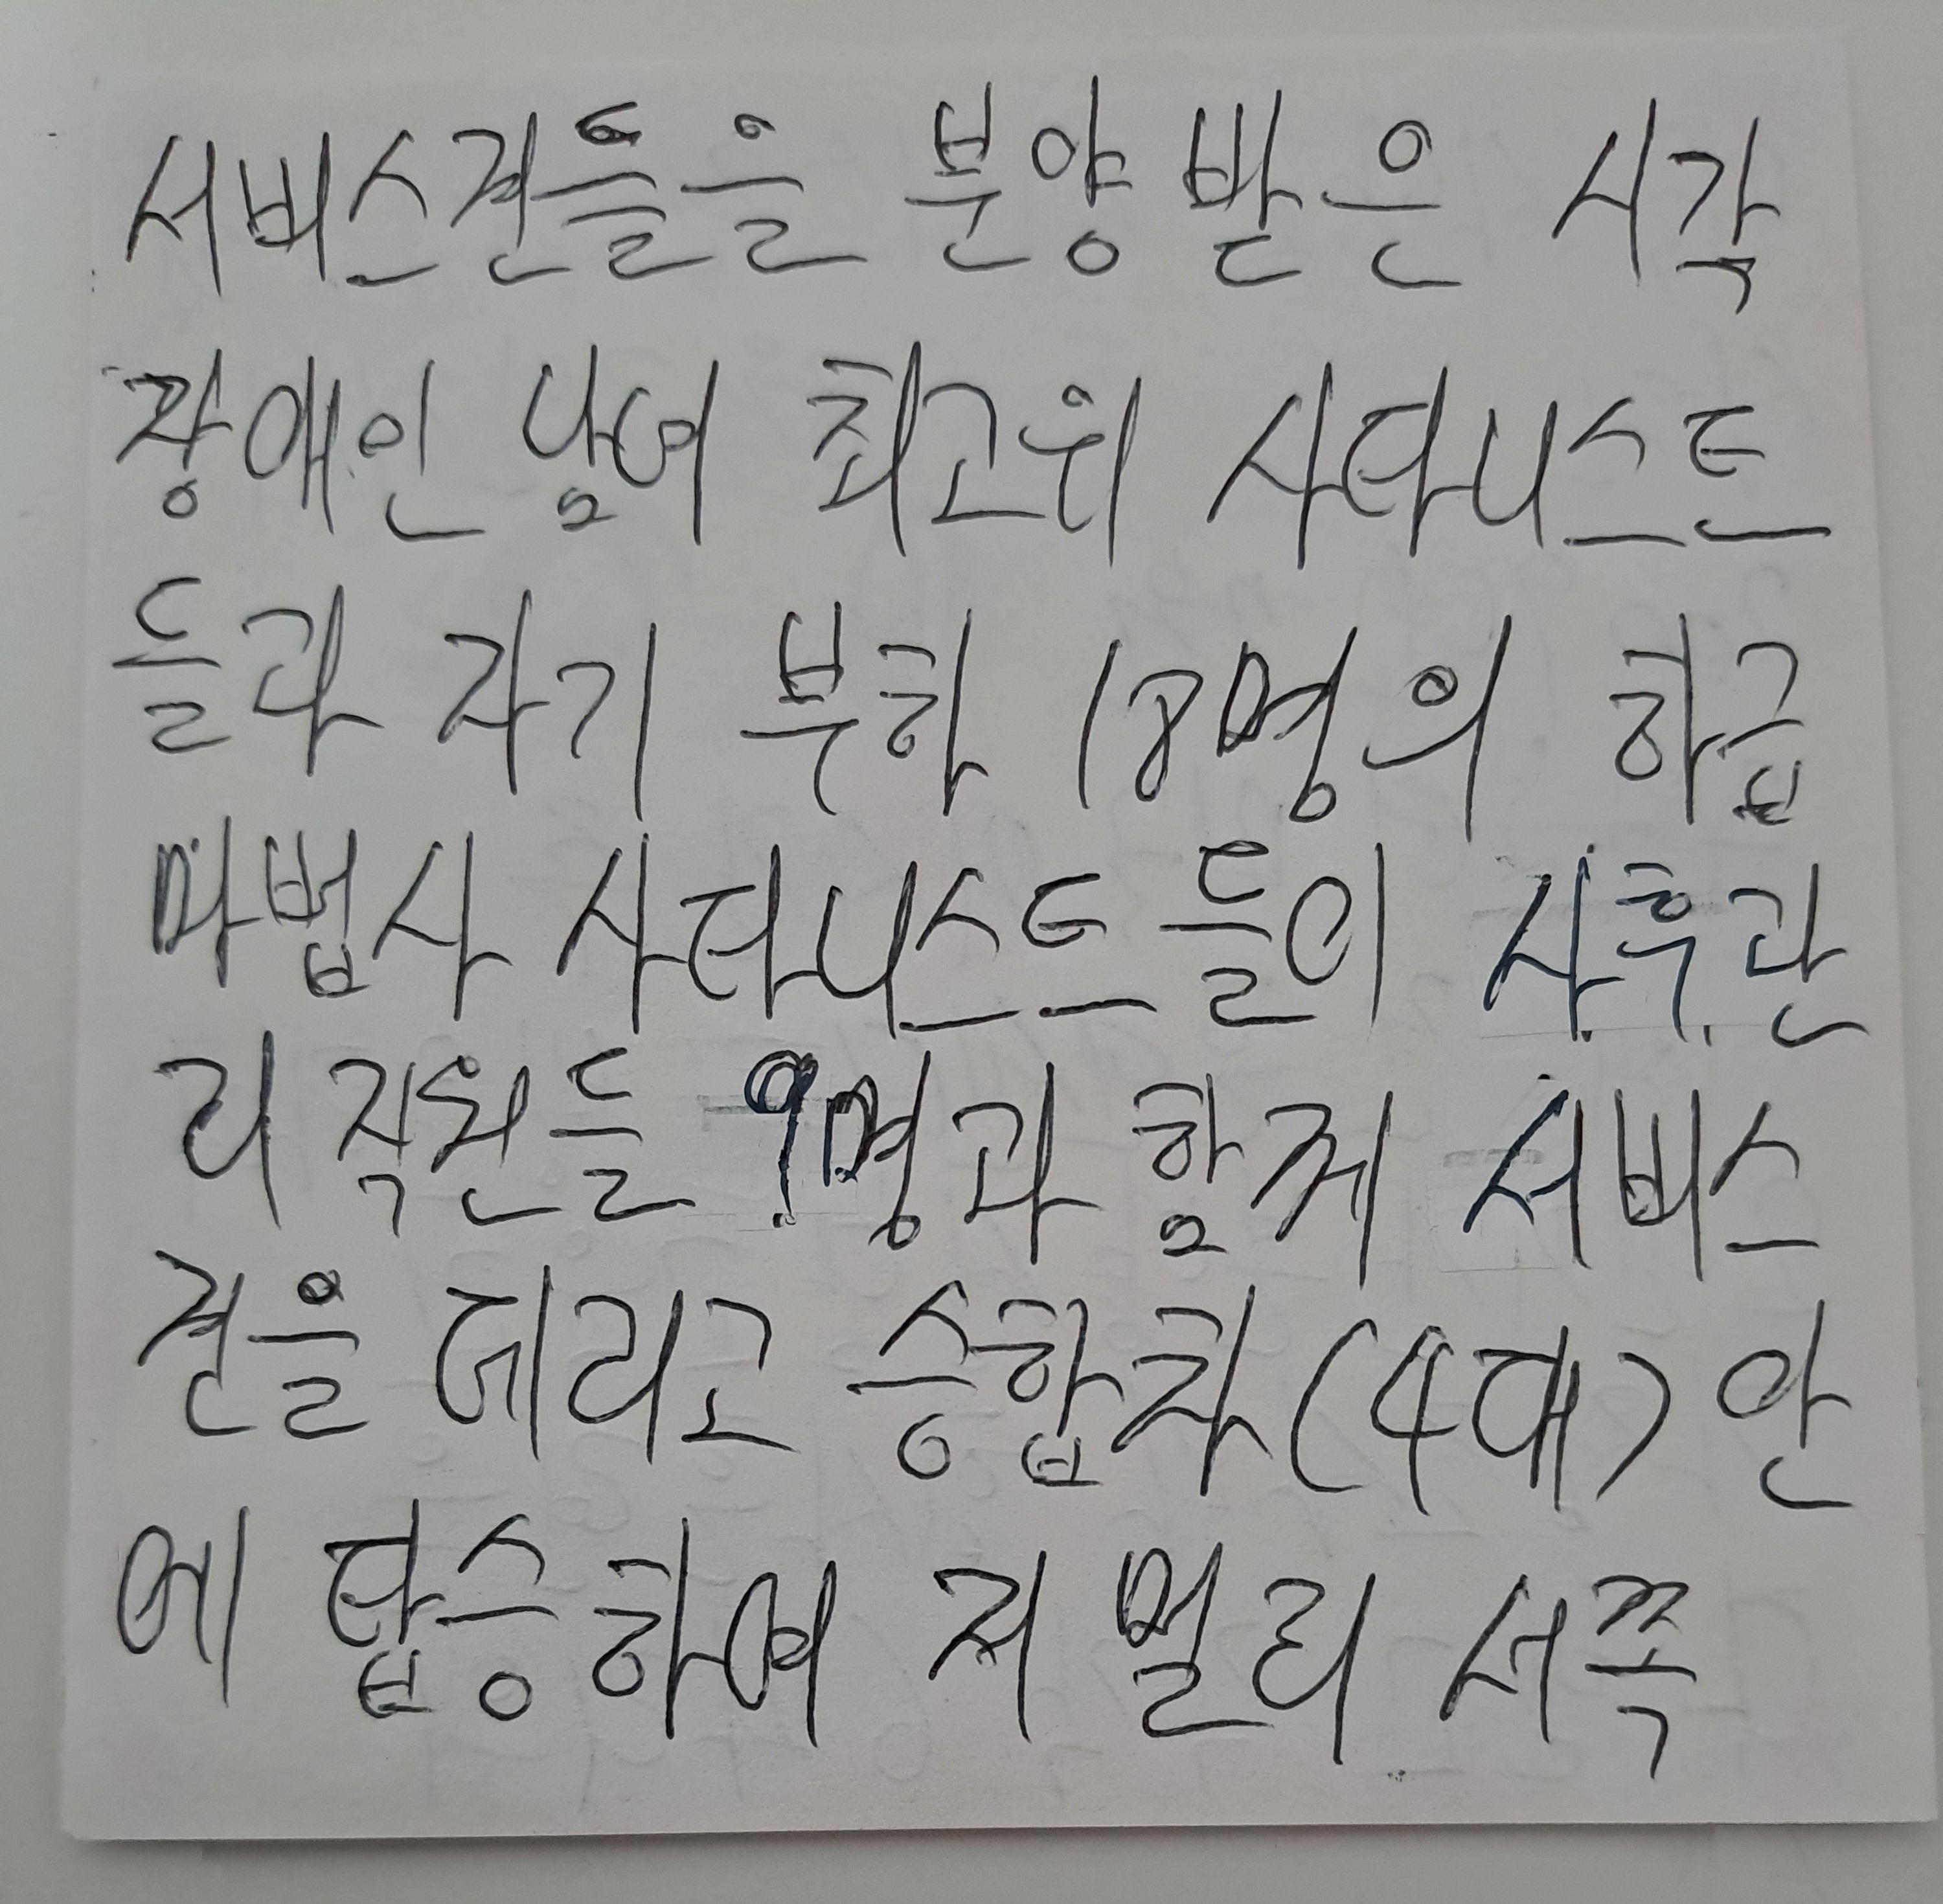 서비스견들을 분양 받은 시각
장애인 남여 최고위 사타니스트
들과 자기 부하 18명의 하급
마법사 사타니스트들이 사후관
리 직원들 9명과 함께 서비스
견을 데리고 승합차(4대) 안
에 탑승하여 저 멀리 서쪽